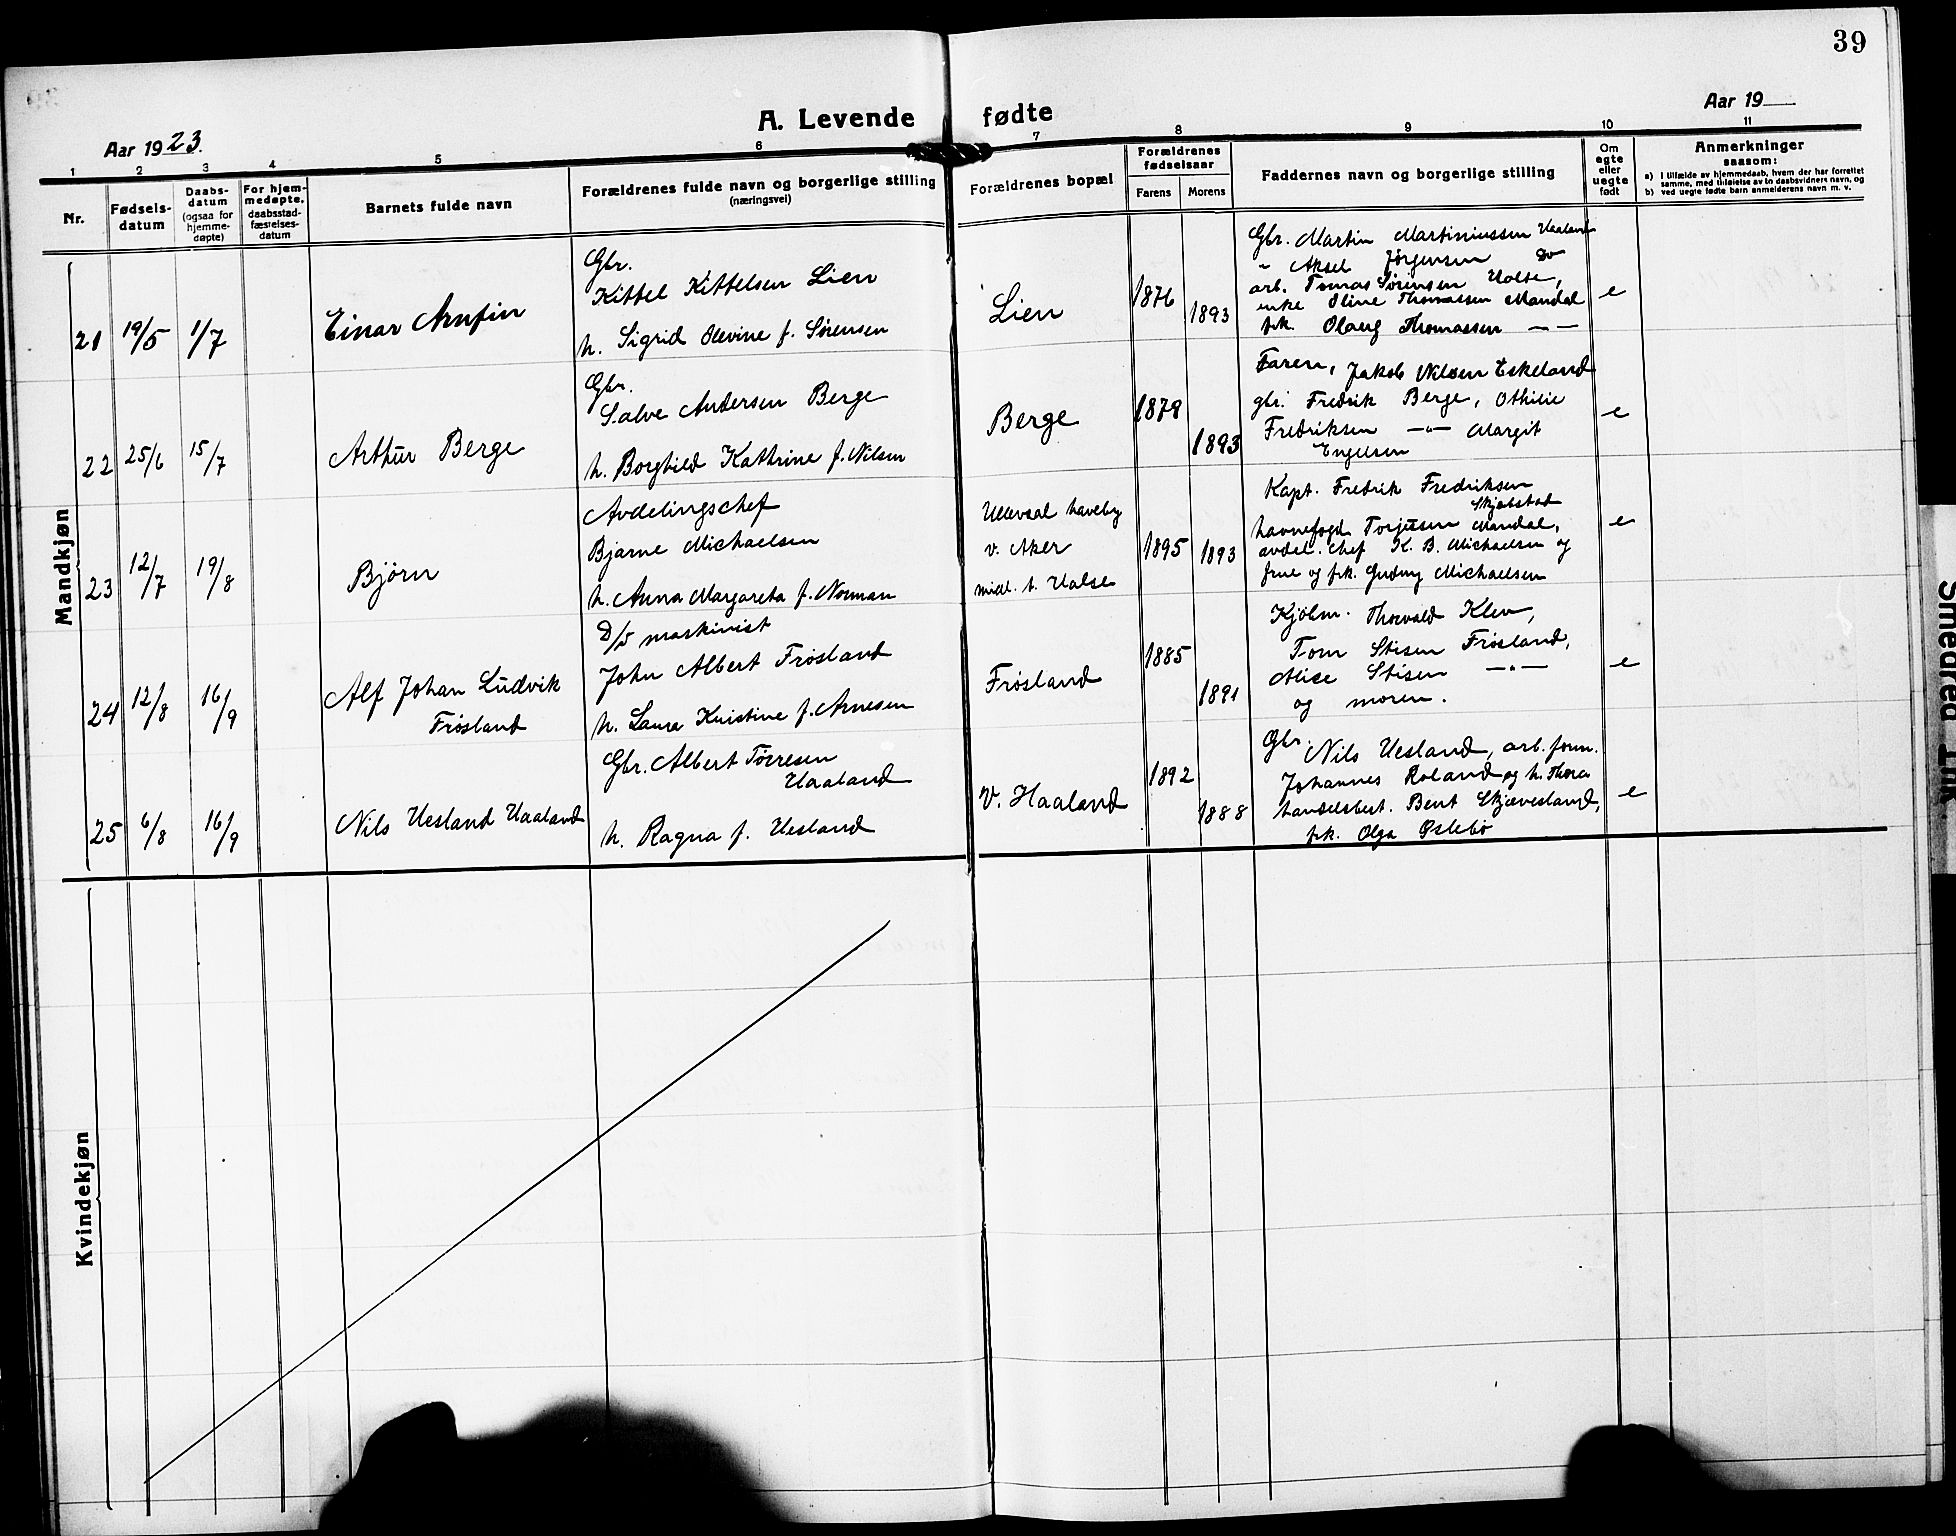 39
A. Levende fødte
Aar 1923.
Aar 19
1 2 3 4 5 6 7 8 9 10 11
Nr.
Fødsels-
datum
Daabs-
datum
(ogsaa for
hjemme-
døpte)
For hjem-
medøpte.
daabsstad-
fæstelses-
datum
Barnets fulde navn
Forældrenes fulde navn og borgerlige stilling
(næringsvei)
Forældrenes bopæl
Forældrenes
fødselsaar
Farens Morens
Faddernes navn og borgerlige stilling
Om
egte
eller
uegte
født
Anmerkninger
saasom:
a) I tilfælde av hjemmedaab, hvem der har forrettet
samme, med tilføielse av to daabsvidners navn, og
b) ved uegte fødte barn anmelderens navn m. v.
Mandkjøn
21 19/5 1/7
Einar Arnfin
Gbr.
Kittel Kittelsen Lien
h. Sigrid Olevine f. Sørensen
Lien
1876 1893
Gbr. Martin Martiniussen Haaland
" Aksel Jørgensen Do
arb. Tomas Sørensen Valse,
enke Oline Thomassen Mandal
frk. Olaug Thomassen — —
e
22 25/6 15/7
Arthur Berge
Gbr.
Salve Andersen Berge
h. Borghild Kathrine f. Nilsen
Berge
1879
1893
Faren, Jakob Nilsen Eskeland
gbr. Fredrik Berge, Othilie
Fredriksen —"— Margit
Engelsen
e
23 12/7 19/8
Bjørn
Avdelingschef
Bjarne Michaelsen
h. Anna Margareta f. Norman
Ullevaal haveby
v. Aker
midl. t. Valse
1895 1893
Kapt. Fredrik Fredriksen
Skjebstad
havnefogd Torjusen Mandal,
avdel. chef K. B. Michaelsen og
frue og frk. Gudny Michaelsen
e
24 12/8 16/9
Alf Johan Ludvik
Frøsland
D/S maskinist
John Albert Frøsland
h. Laura Kristine f. Arnesen
Frøsland
1885
1891
Kjøbm. Thorvald Klev,
Tom Stisen Frøsland,
Alice Stisen —"—
og moren.
e
25 6/8 16/9
Nils Uesland Haaland
Gbr. Albert Tørresen
Haaland
h. Ragna f. Uesland
V. Haaland
1892
1888
Gbr. Nils Uesland, arb. form.
Johannes Roland og h. Thora
handelsbest. Bent Skjævesland,
frk. Olga Øslebø
e
Kvindekjøn
Smedred 1nk.